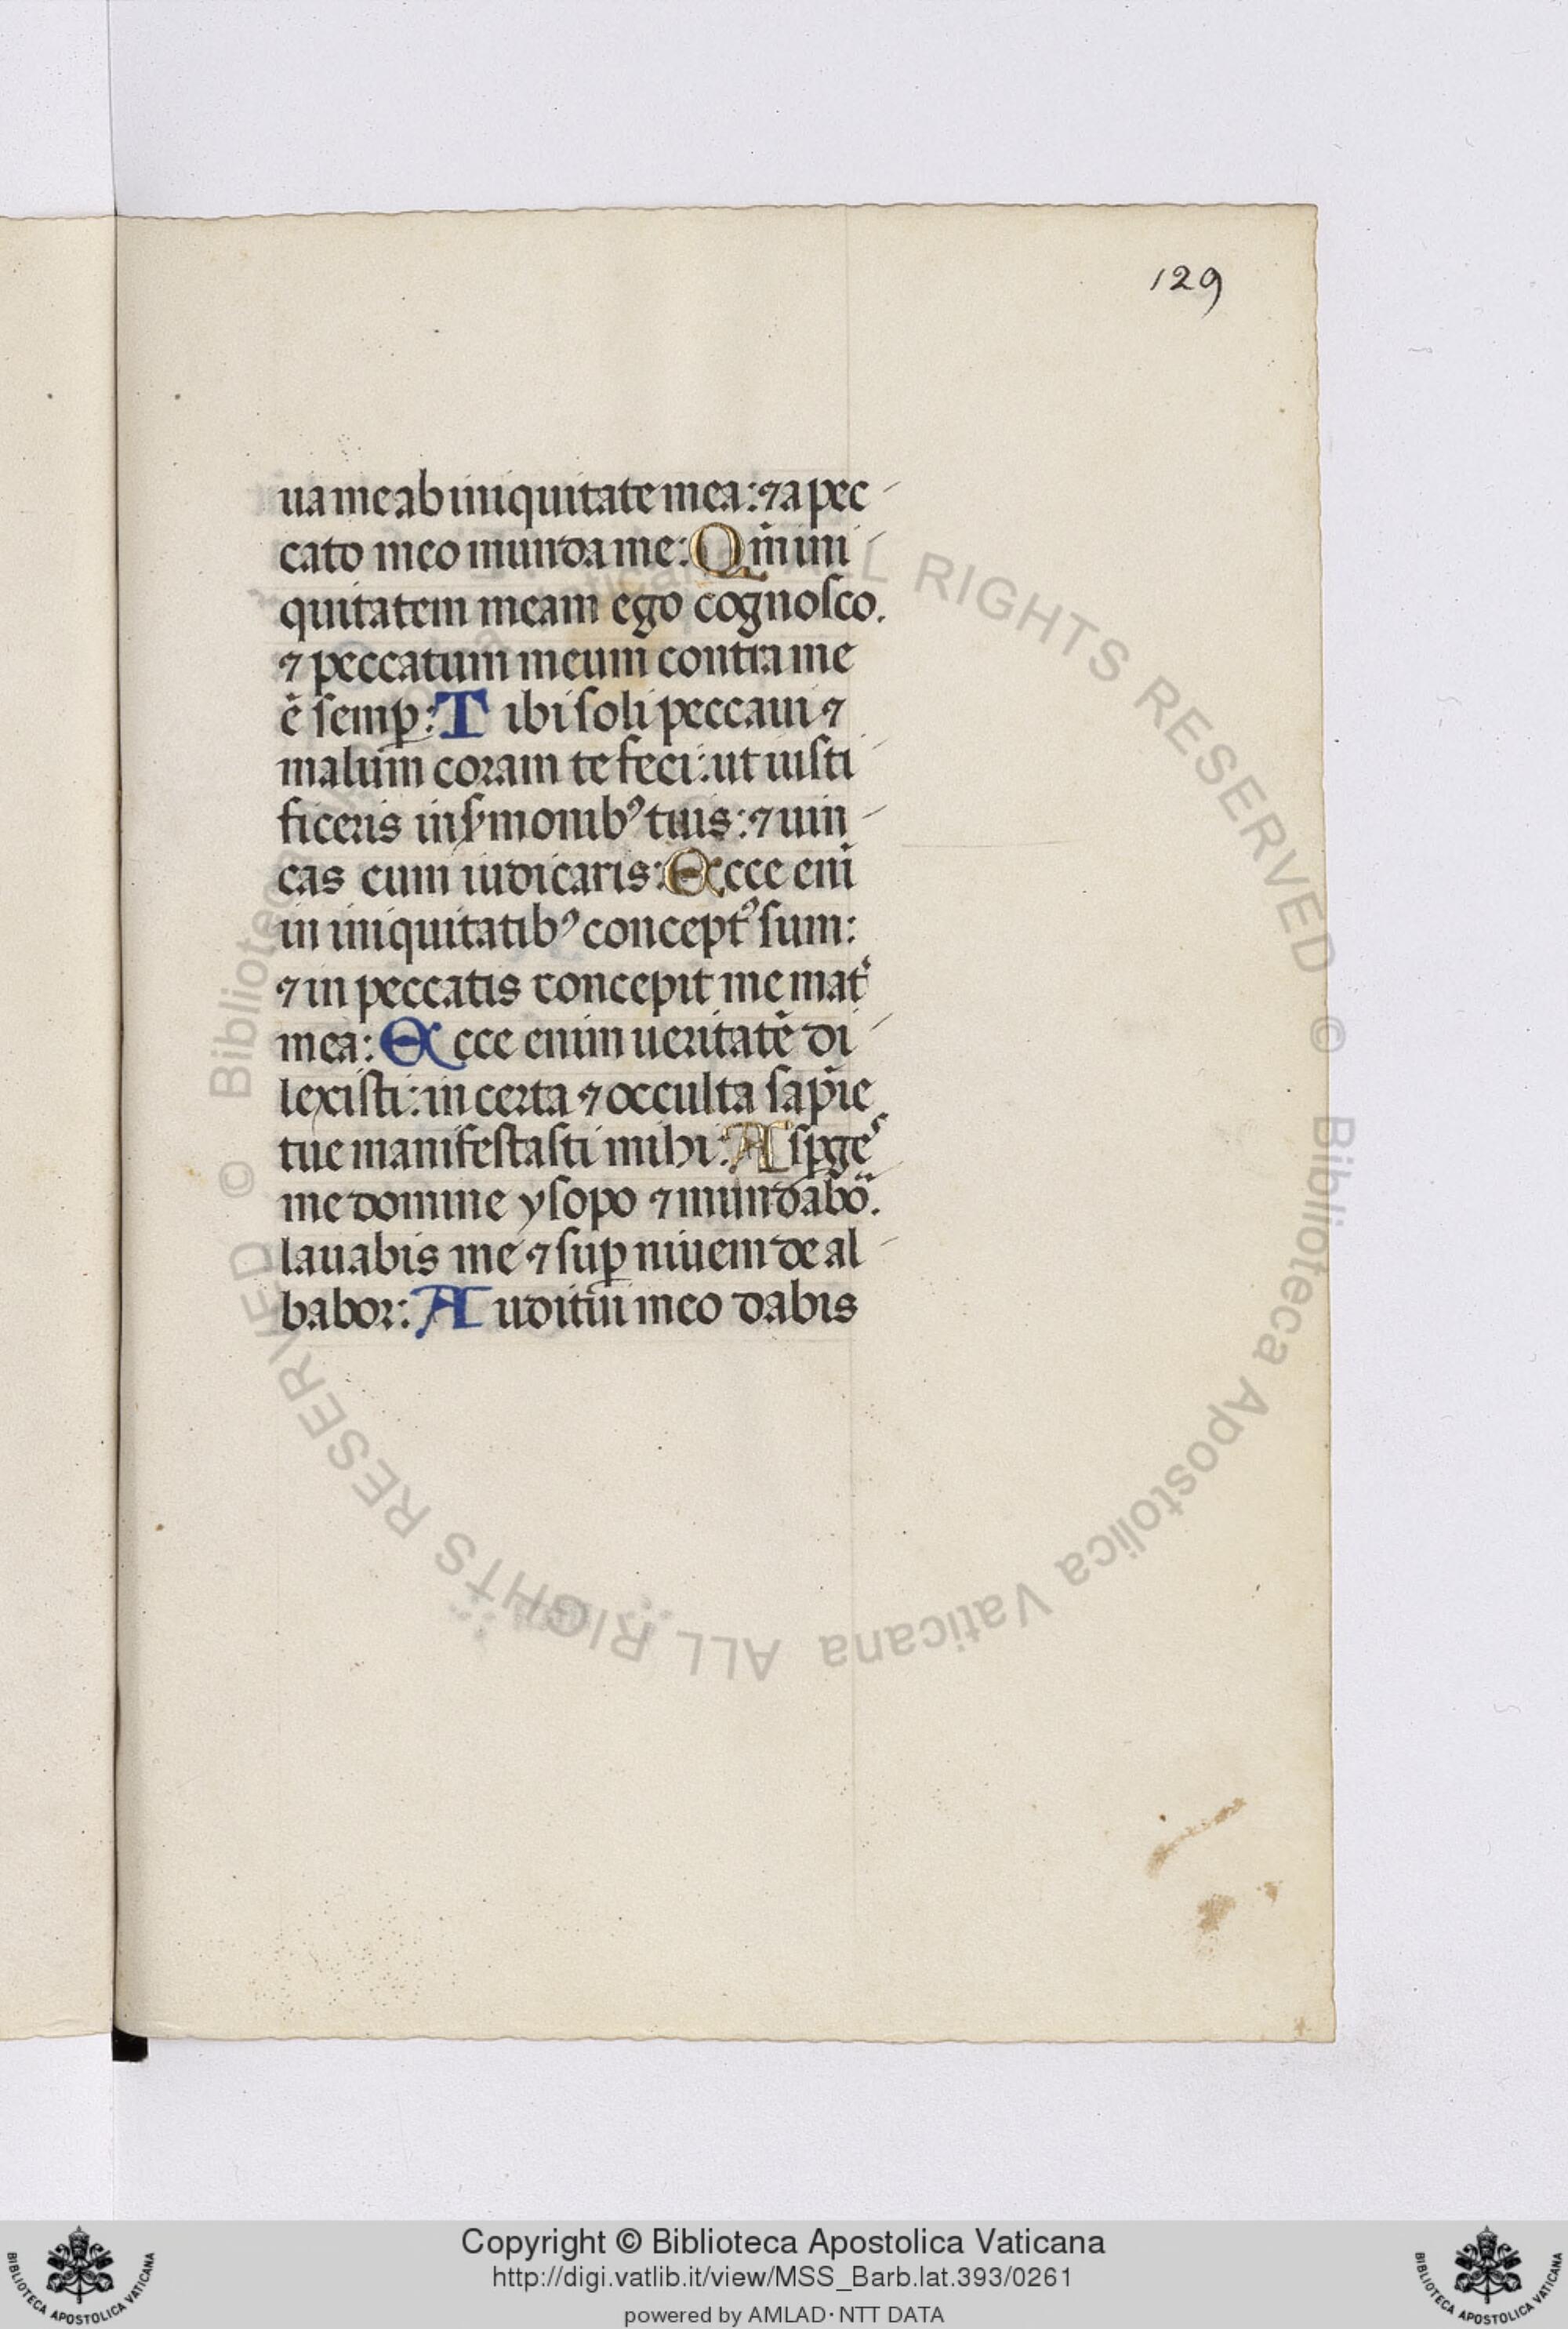 129
ua me ab iniquitate mea: ⁊ a pec
cato meo munda me: Qm̄ ini
quitatem meam ego cognosco.
⁊ peccatum meum contra me
ē semꝑ: Tibi soli peccaui ⁊
malum coram te feci: ut iusti
ficeris in ẜmonibꝰ tuis: ⁊ uin
cas cum iudicaris: Ecce eni̅
in iniquitatibꝰ conceptꝰ sum:
⁊ in peccatis concepit me mat͛
mea: Ecce enim ueritatē di
lexisti: in certa ⁊ occulta sapīe
tue manifestasti mihi: Asꝑges
me domine ysopo ⁊ mundabo͛.
lauabis me ⁊ suꝑ niuem de al
babor: Auditui meo dabis
© Biblioteca Apostolica Vaticana ALL RIGHTS RESERVED © Biblioteca Apostolica Vaticana ALL RIGHTS RESERVED
Copyright © Biblioteca Apostolica Vaticana
http://digi.vatlib.it/view/MSS_Barb.lat.393/0261
powered by AMLAD·NTT DATA
BIBLIOTECA APOSTOLICA VATICANA
BIBLIOTECA APOSTOLICA VATICANA